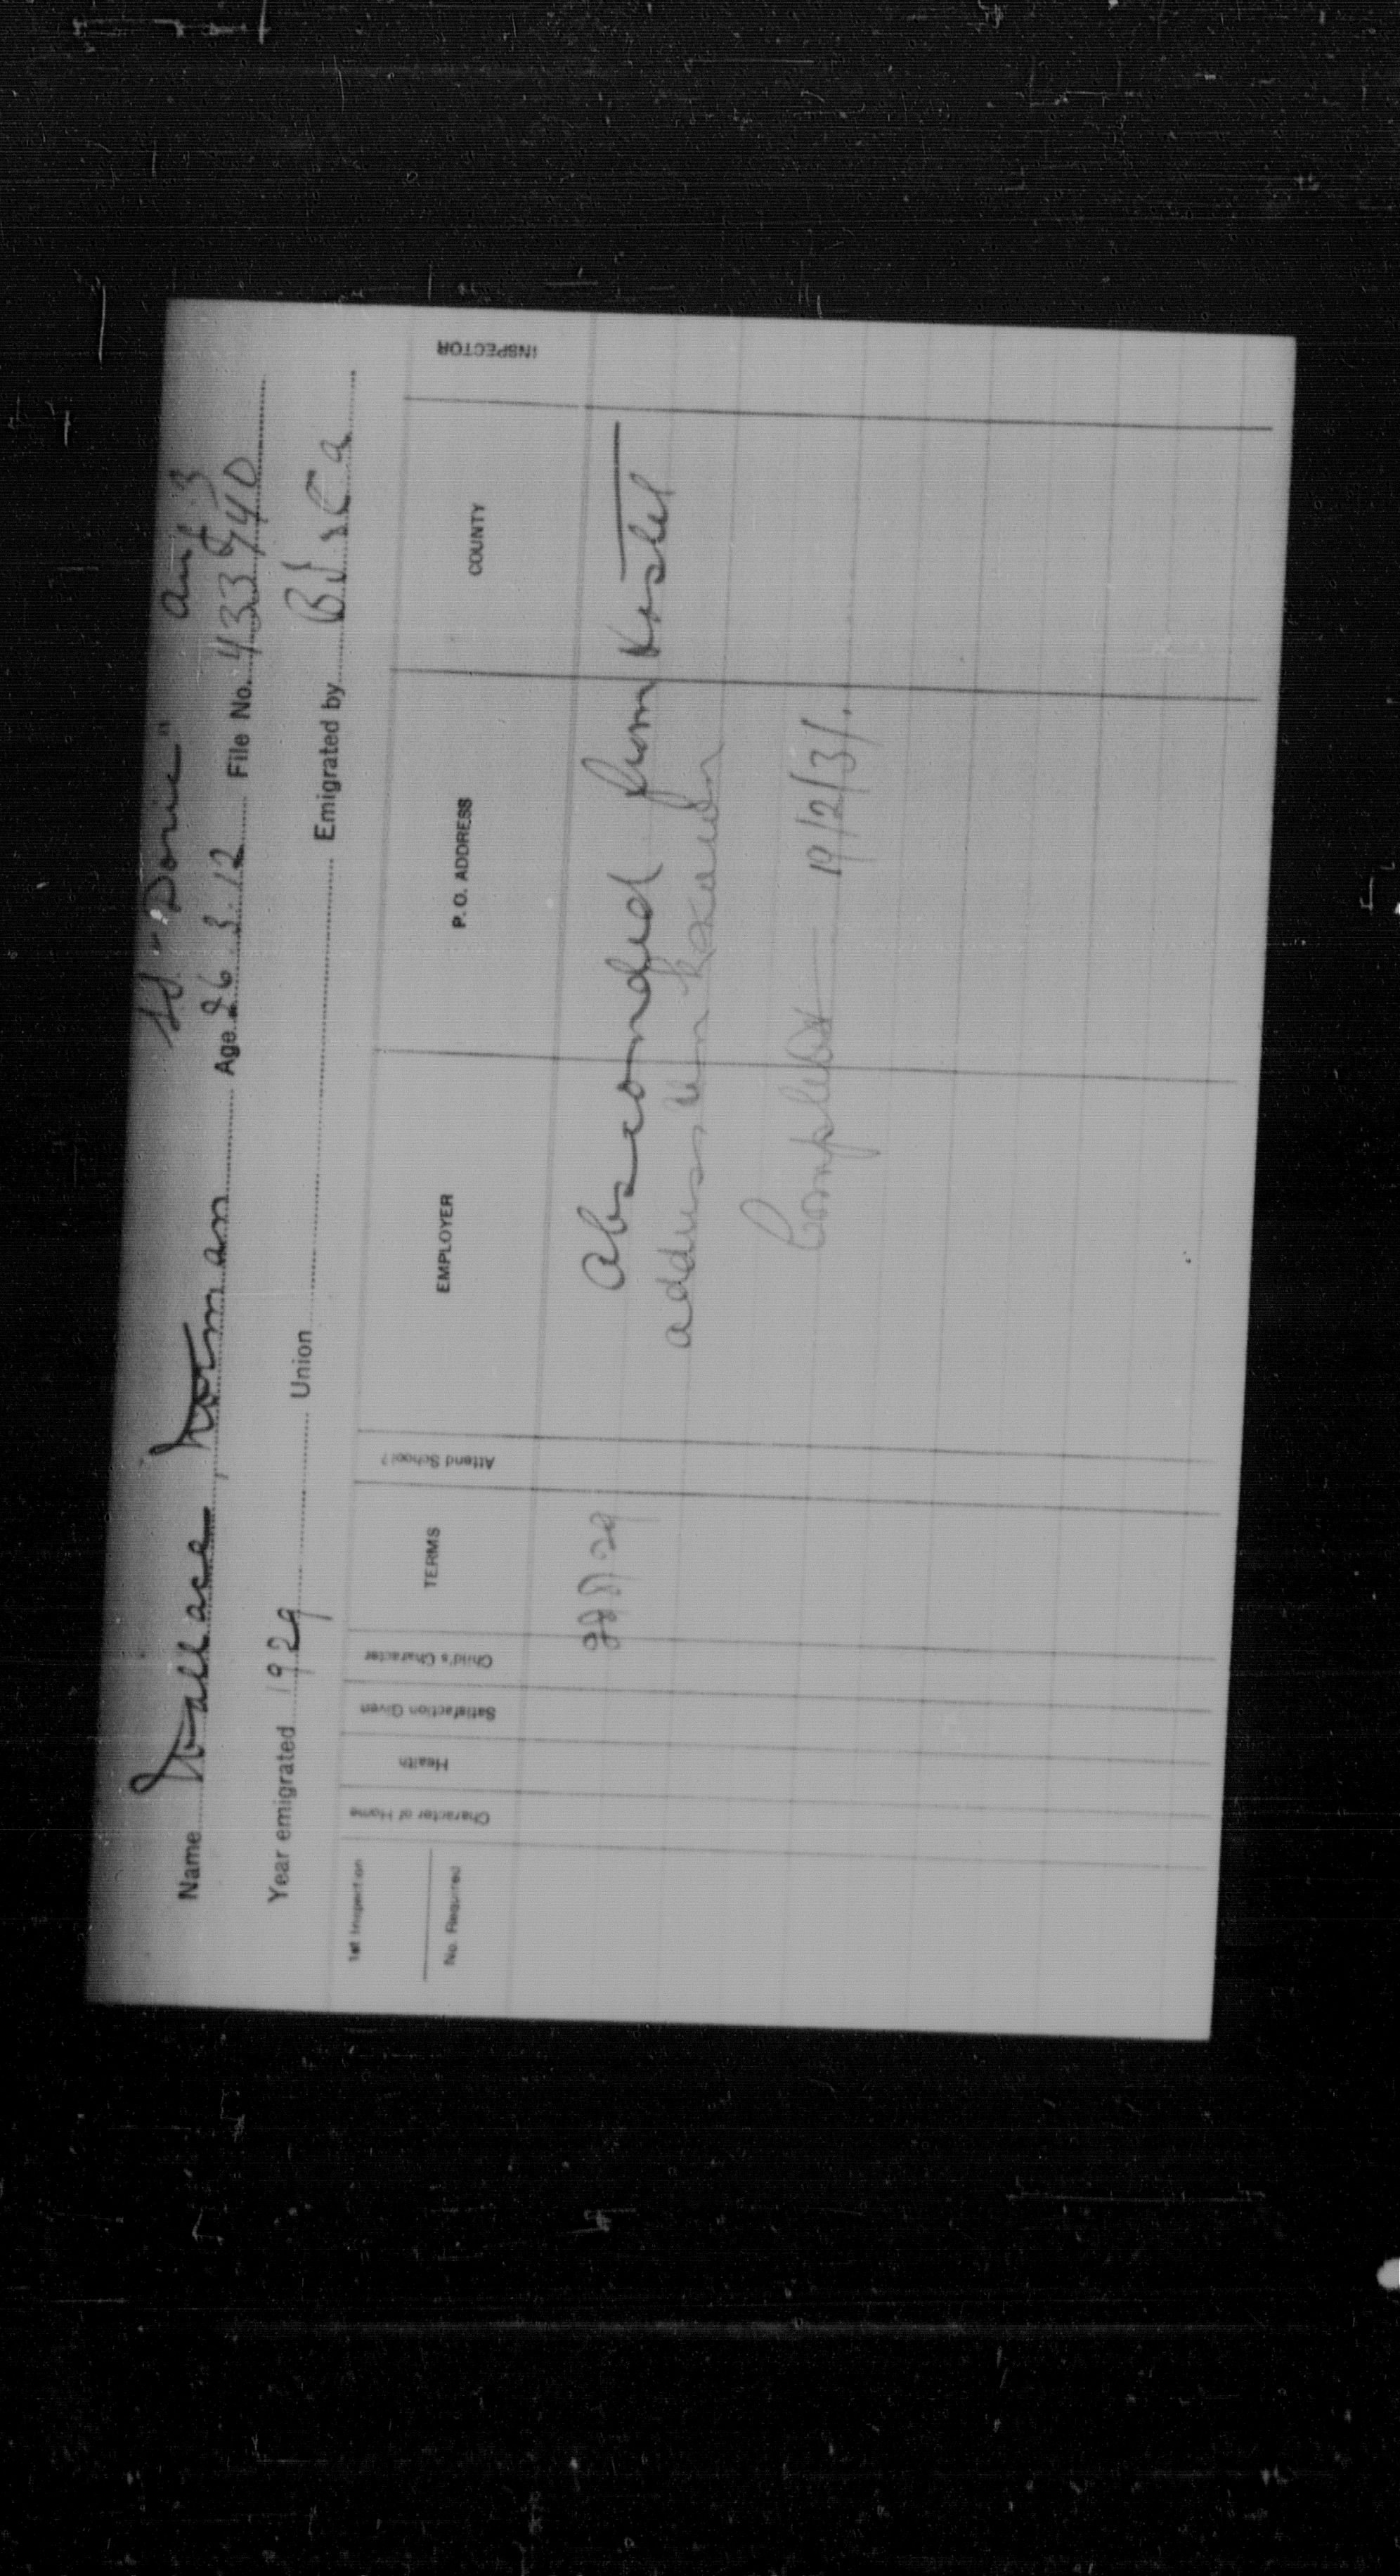 SS. "Doric" Aug 3
Name Wallace, Norman Age 26.3.12 File No. 433940
Year emigrated 1929 Union Emigrated by B.I. & C.A.
1st Inspection
No. Required
Character of Home
Health
Satisfaction Given
Child's Character
TERMS
Attend School?
EMPLOYER
P. O. ADDRESS
COUNTY
INSPECTOR
Absconded from Hostel
address unknown
Completed 19/2/31.